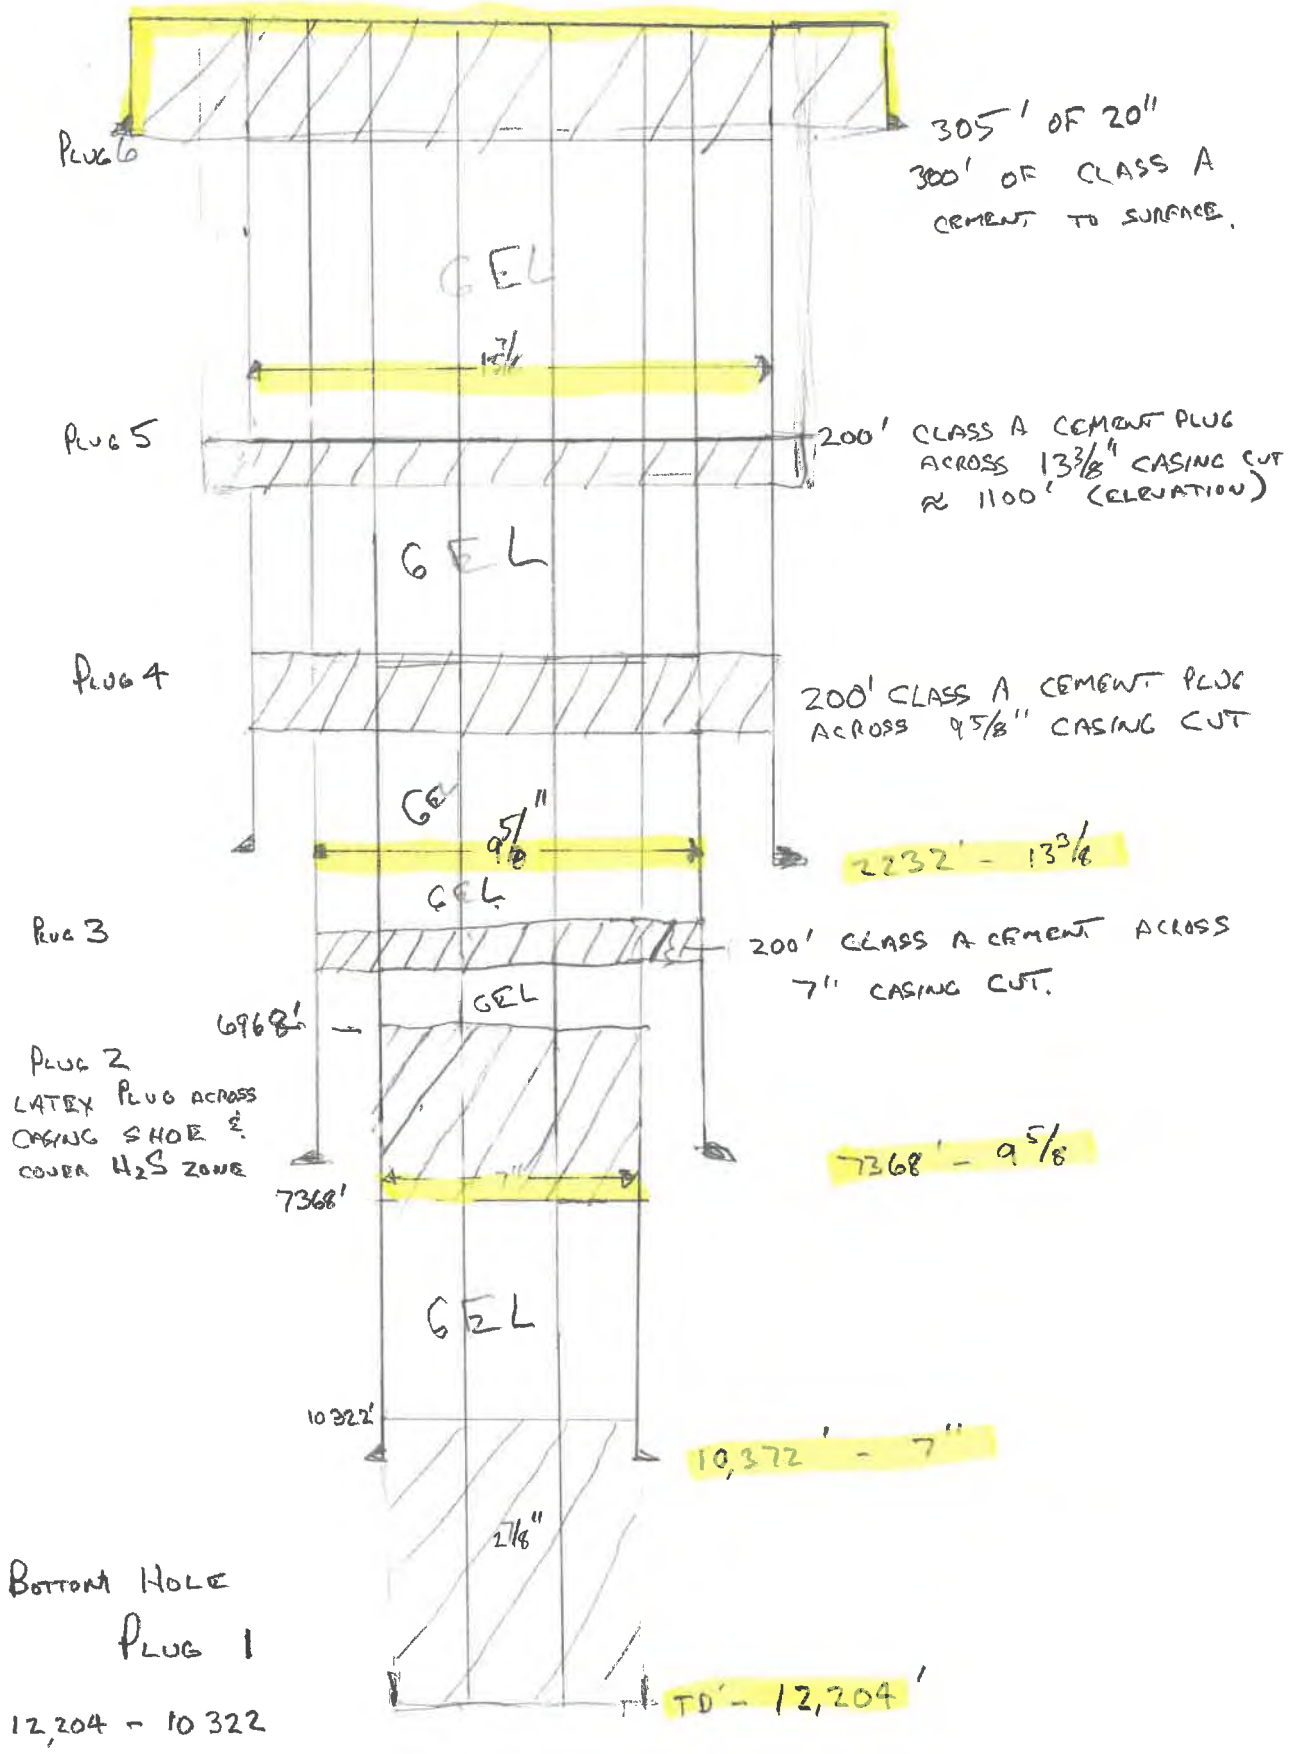 PLUG 6
305' OF 20"
300' OF CLASS A
CEMENT TO SURFACE.
GEL
PLUG 5
200' CLASS A CEMENT PLUG
ACROSS 13 3/8" CASING CUT
≈ 1100' (ELEVATION)
GEL
PLUG 4
200' CLASS A CEMENT PLUG
ACROSS 9 5/8" CASING CUT
GEL
9 5/8"
2232' - 13 3/8
GEL
PLUG 3
200' CLASS A CEMENT ACROSS
7" CASING CUT.
GEL
6968'
PLUG 2
LATEX PLUG ACROSS
CASING SHOE &
COVER H2S ZONE
7"
7368' - 9 5/8
7368'
GEL
10322'
10,372' - 7"
2 7/8"
BOTTOM HOLE
PLUG 1
TD - 12,204'
12,204 - 10322